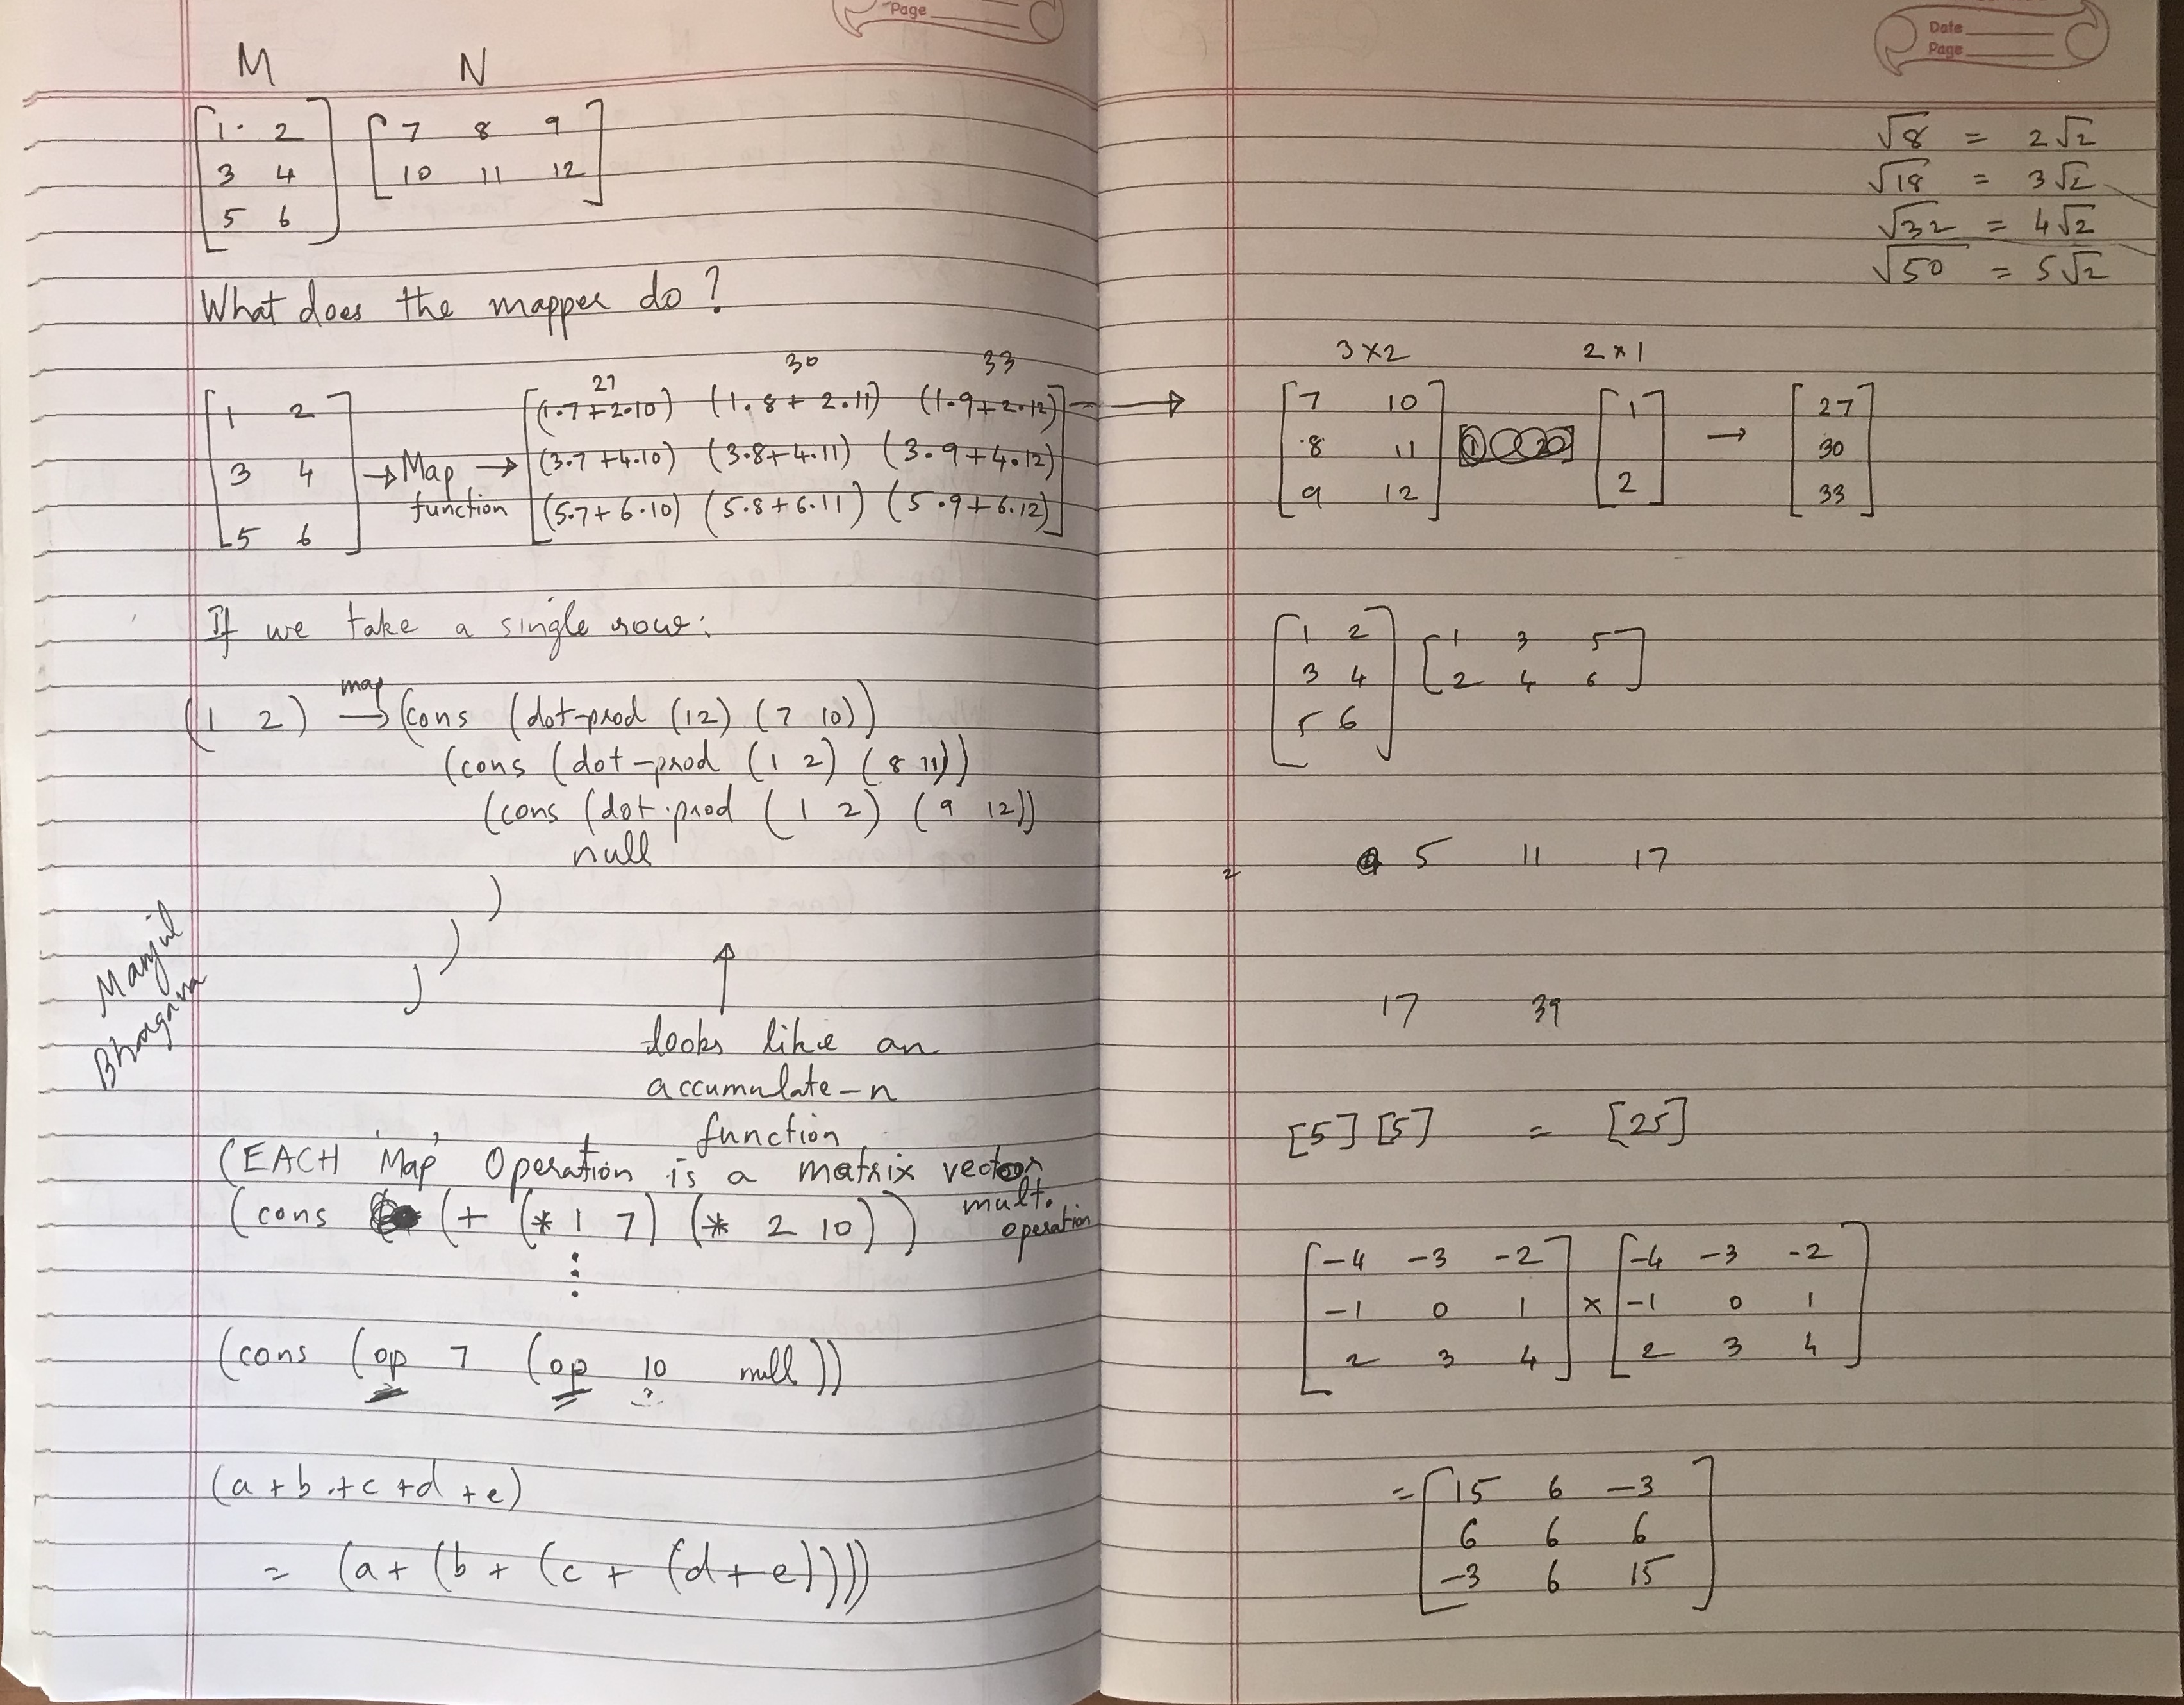 Page
M N
[1· 2] [7 8 9]
[3 4] [10 11 12]
[5 6]
What does the mapper do?
27 30 33
[1 2] [(1·7+2·10) (1·8+2·11) (1·9+2·12)] →
[3 4] → Map → [(3·7+4·10) (3·8+4·11) (3·9+4·12)]
function
[5 6] [(5·7+6·10) (5·8+6·11) (5·9+6·12)]
If we take a single row:
map
(1 2) → (cons (dot-prod (12) (7 10))
(cons (dot-prod (1 2) (8 11))
(cons (dot-prod (1 2) (9 12))
null
)
)
)
↑
looks like an
accumulate-n
function
Manjul
Bhargava
(EACH 'Map' Operation is a matrix vector
mult.
operation
(cons (+ (* 1 7) (* 2 10))
⋮
(cons (op 7 (op 10 null))
(a+b+c+d+e)
= (a+ (b+ (c+ (d+e))))
Date
Page
√8 = 2√2
√18 = 3√2
√32 = 4√2
√50 = 5√2
3×2 2×1
[7 10] [1] → [27]
[8 11] [30]
[9 12] [2] [33]
[1 2] [1 3 5]
[3 4] [2 4 6]
[5 6]
5 11 17
17 39
[5][5] = [25]
[-4 -3 -2] [-4 -3 -2]
[-1 0 1] × [-1 0 1]
[2 3 4] [2 3 4]
= [15 6 -3]
[6 6 6]
[-3 6 15]